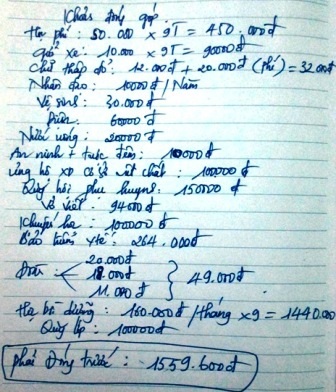 Khoản đóng góp.
Học phí: 50.000 x 9T = 450.000đ
Giữ xe: 10.000 x 9T = 90000đ
Chữ thập đỏ: 12.000đ + 20.000đ (phí) = 32.000đ
Nhân đạo: 10000đ / Năm
Vệ sinh: 30.000đ
Điện: 60000đ
Nước uống: 20000đ
An ninh + trực đêm: 10000đ
Ủng hộ XD cơ sở vật chất: 100000đ
Quỹ hội phụ huynh: 150000đ
Vở viết: 94000đ
Khuyến học: 100000đ
Bảo hiểm y tế: 264.000đ
20.000đ
Đoàn 18.000đ } 49.000đ
11.000đ
Học bồi dưỡng: 160.000đ/tháng x9 = 1440.000
Quỹ lớp: 100000đ
phải đóng trước: 1559.600đ